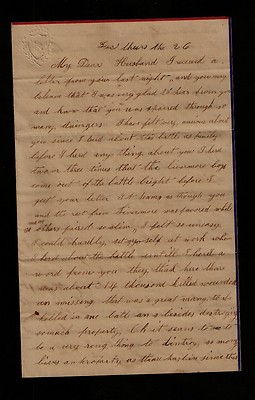 thurs the 26
My Dear Husband I received a
letter from you last night and you may
beleive that I was very glad to hear from you
and know that you was spared through so
many dangers I have felt very anxious about
you since I heard about the battle
before I herd any thing about you I herd
two or three times that the Livermore boys
come out of the battle bright before I
got your letter It seams as though you
and the rest from Livermore was favored while
others faired so slim, I felt so uneasy
I could hardly set myself at work when
I herd about the battle untill I herd a
word from you they think here thare
was about 14 thousand killed wounded
and missing that was a great many to be
killed in one battle and besides destroying
so much property, Oh it seems to me to
be a very rong thing to destroy so many
lives and property as there has been since this